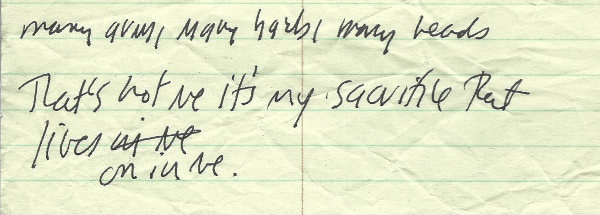 many arms, many hands, many heads
That's not me it's my sacrifice that
lives in me
on in me.